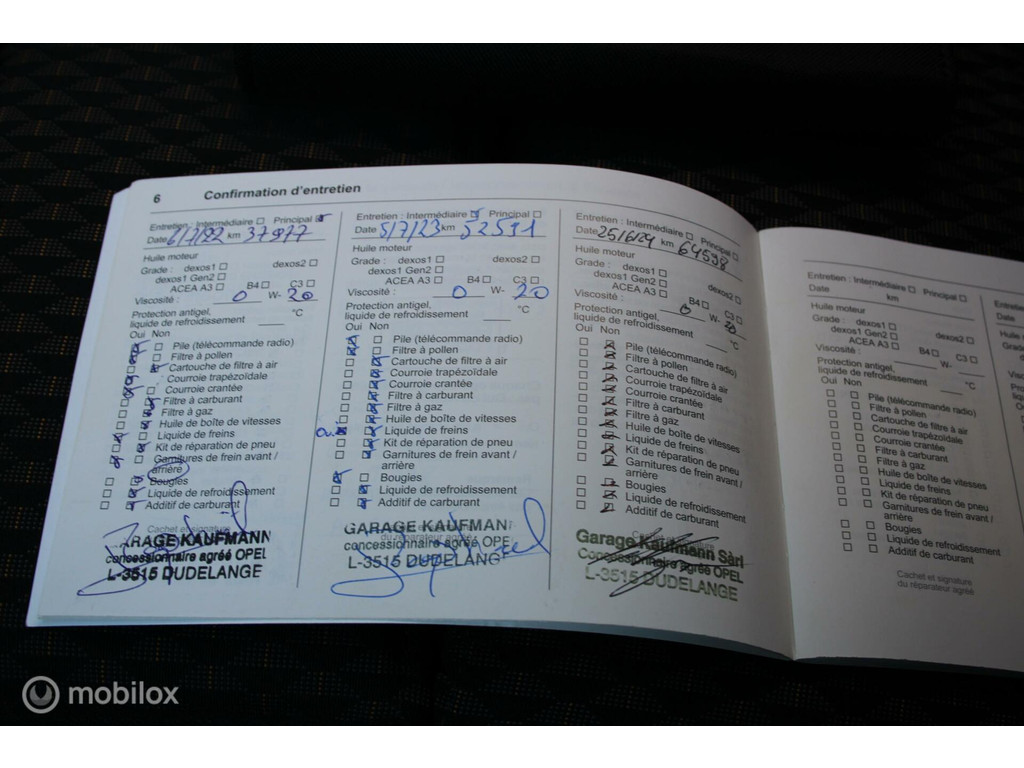 6 Confirmation d'entretien
Entretien : Intermédiaire Principal
Date 6/7/22 km 37977
Huile moteur
Grade : dexos1 dexos2
dexos1 Gen2
ACEA A3 B4 C3
Viscosité : 0 W- 20
Protection antigel,
liquide de refroidissement °C
Oui Non
Pile (télécommande radio)
Filtre à pollen
Cartouche de filtre à air
Courroie trapézoïdale
Courroie crantée
Filtre à carburant
Filtre à gaz
Huile de boîte de vitesses
Liquide de freins
Kit de réparation de pneu
Garnitures de frein avant /
arrière
Bougies
Liquide de refroidissement
Additif de carburant
Cachet et signature
GARAGE KAUFMANN
concessionnaire agréé OPEL
L-3515 DUDELANGE
Entretien : Intermédiaire Principal
Date 5/7/23 km 52591
Huile moteur
Grade : dexos1 dexos2
dexos1 Gen2
ACEA A3 B4 C3
Viscosité : 0 W- 20
Protection antigel,
liquide de refroidissement °C
Oui Non
Pile (télécommande radio)
Filtre à pollen
Cartouche de filtre à air
Courroie trapézoïdale
Courroie crantée
Filtre à carburant
Filtre à gaz
Huile de boîte de vitesses
Liquide de freins
Kit de réparation de pneu
Garnitures de frein avant /
arrière
Bougies
Liquide de refroidissement
Additif de carburant
GARAGE KAUFMAN
concessionnaire agréé OPE
L-3515 DUDELANG
Entretien : Intermédiaire Principal
Date 25/6/24 km 64598
Huile moteur
Grade : dexos1 dexos2
dexos1 Gen2
ACEA A3 B4 C3
Viscosité : 0 W- 20
Protection antigel,
liquide de refroidissement °C
Oui Non
Pile (télécommande radio)
Filtre à pollen
Cartouche de filtre à air
Courroie trapézoïdale
Courroie crantée
Filtre à carburant
Filtre à gaz
Huile de boîte de vitesses
Liquide de freins
Kit de réparation de pneu
Garnitures de frein avant /
arrière
Bougies
Liquide de refroidissement
Additif de carburant
Garage Kaufmann Sàrl
Concessionnaire agréé OPEL
L-3515 DUDELANGE
Entretien : Intermédiaire Principal
Date km
Huile moteur
Grade : dexos1 dexos2
dexos1 Gen2
ACEA A3 B4 C3
Viscosité : W-
Protection antigel,
liquide de refroidissement °C
Oui Non
Pile (télécommande radio)
Filtre à pollen
Cartouche de filtre à air
Courroie trapézoïdale
Courroie crantée
Filtre à carburant
Filtre à gaz
Huile de boîte de vitesses
Liquide de freins
Kit de réparation de pneu
Garnitures de frein avant /
arrière
Bougies
Liquide de refroidissement
Additif de carburant
Cachet et signature
du réparateur agréé
Date
mobilox